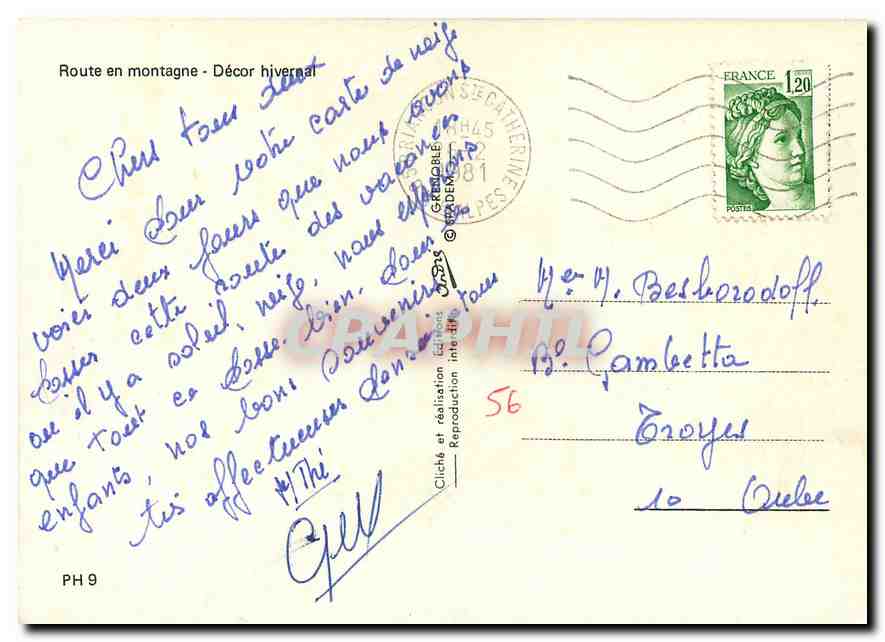 Route en montagne - Décor hivernal
Chers tous deux
Merci pour votre carte de neige
voici deux jours que nous avons
cette route des vacances
ou il y a soleil, neige, nous espérons
que tout ce passe bien, pour les
enfants, nos bons souvenirs
très affectueuses pensées tous
PH 9
BRIANÇON STE CATHERINE
18H45
1981
ALPES
FRANCE
1,20
POSTES
Cliché et réalisation Editions André GRENOBLE
Reproduction interdite © SPADEM
CPAPHIL
56
Mer M. Besborodoff
Bd Gambetta
Troyes
10 Aube